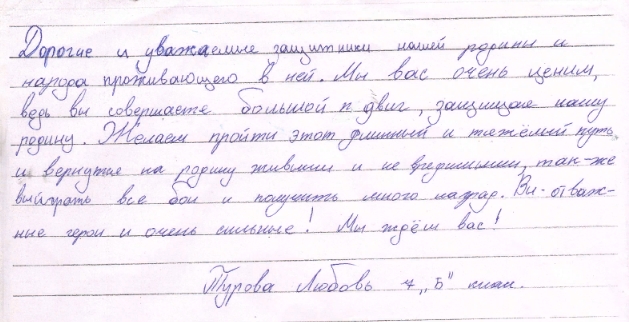 Дорогие и уважаемые защитники нашей родины и
народа проживающего в ней. Мы вас очень ценим,
ведь вы совершаете большой п двиг, защищая нашу
родину. Желаем пройти этот длинный и тяжёлый путь
и вернутся на родину живыми и не вредимыми, так-же
выйграть все бои и получить много наград. Вы-отваж-
ные герои и очень сильные! Мы ждём вас!
Турова Любовь 7 „Б" класс.